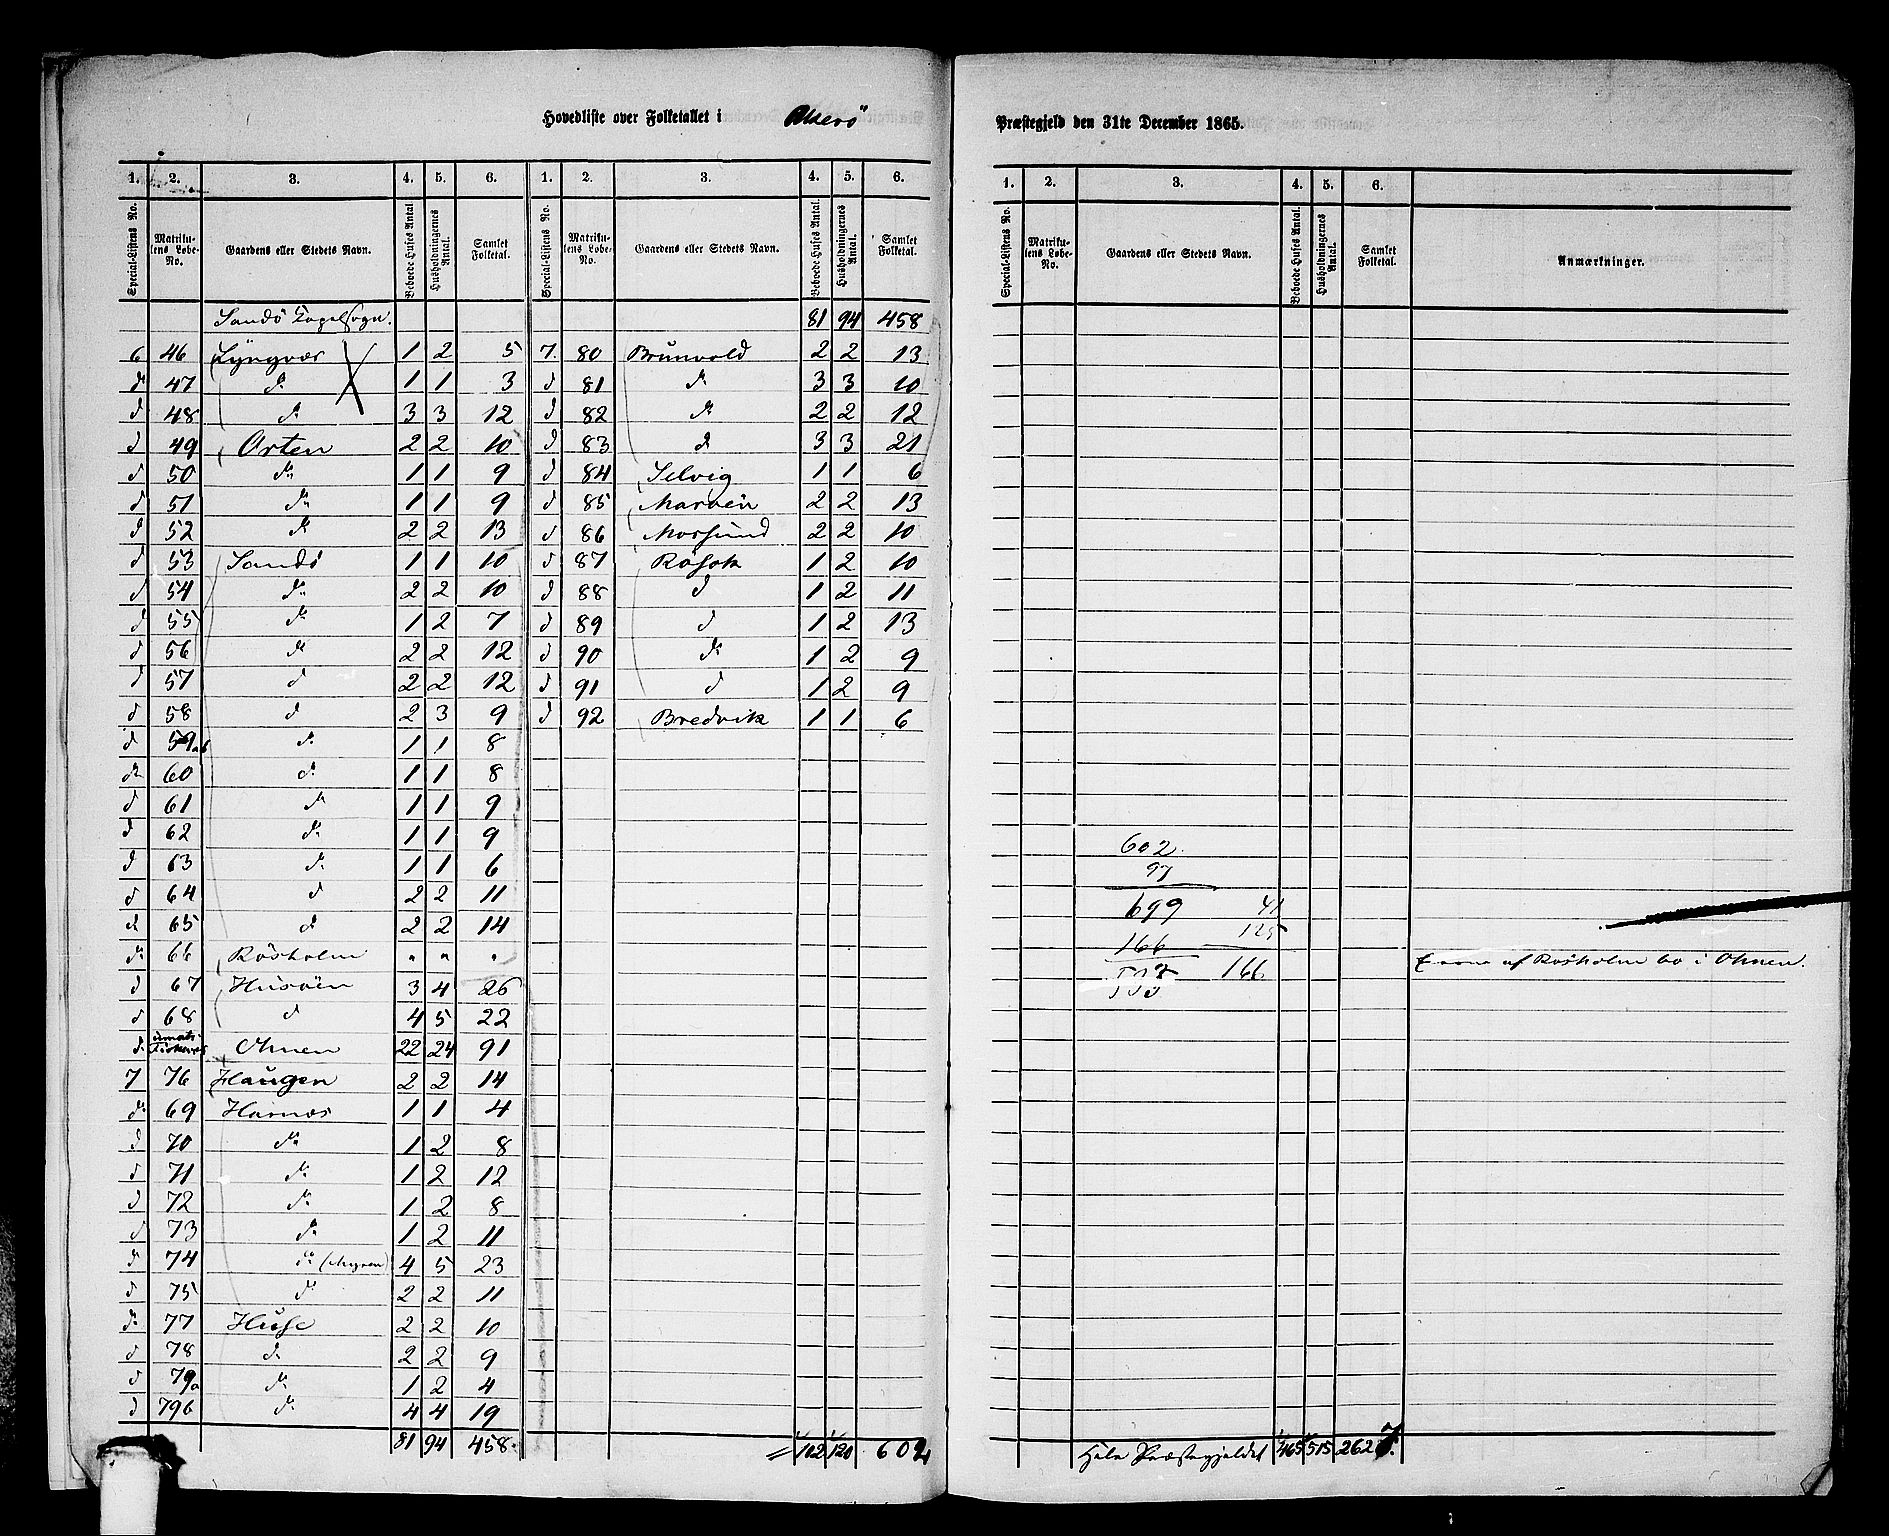 Hovedliste over Folketallet i Akerö Præstegjeld den 31te December 1865.
1. 2. 3. 4. 5. 6. 1. 2. 3. 4. 5. 6.
Special-Listens No. Matrikulens Løbe-No. Gaardens eller Stedets Navn. Beboede Huses Antal. Husholdningernes Antal. Samlet Folketal. Special-Listens No. Matrikulens Løbe-No. Gaardens eller Stedets Navn. Beboede Huses Antal. Husholdningernes Antal. Samlet Folketal.
Sandö Capelsogn. 81 94 458
6 46 Lyngvær 1 2 5 7. 80 Brunvold 2 2 13
do 47 do 1 1 3 d 81 do 3 3 10
d 48 do 3 3 12 d 82 do 2 2 12
d 49 Orten 2 2 10 d 83 d 3 3 21
d 50 do 1 1 9 d 84 Selvig 1 1 6
d 51 do 1 1 9 d 85 Maröen 2 2 13
d 52 do 2 2 13 d 86 Morsund 2 2 10
d 53 Sandö 1 1 10 d 87 Rösok 1 2 10
d 54 do 2 2 10 d 88 d 1 2 11
d 55 do 1 2 7 d 89 d 1 2 13
d 56 do 2 2 12 d 90 do 1 2 9
d 57 d 2 2 12 d 91 d 1 2 9
d 58 d 2 3 9 d 92 Bredvik 1 1 6
d 59ab do 1 1 8
do 60 do 1 1 8
d 61 do 1 1 9
d 62 do 1 1 9
d 63 do 1 1 6
d 64 d 2 2 11
d 65 d 2 2 14
do 66 Rösholm " " "
d 67 Husöen 3 4 26
d 68 d 4 5 22
do Ohnen 22 24 91
7 76 Haugen 2 2 14
do 69 Harnæs 1 1 4
d 70 do 1 2 8
d 71 do 1 2 12
d 72 do 1 2 8
d 73 do 1 2 11
d 74 do (Myren) 4 5 23
d 75 do 2 2 11
do 77 Huse 2 2 10
d 78 do 2 2 9
d 79a do 1 2 4
d 79b do 4 4 19
81 94 458. 102 120 602
1. 2. 3. 4. 5. 6.
Special-Listens No. Matrikulens Løbe-No. Gaardens eller Stedets Navn. Beboede Huses Antal. Husholdningernes Antal. Samlet Folketal. Anmærkninger.
602.
97
699 41
166 125
166
af Rösholm bo i Ohnen.
Hele Præstegjeldet 465 515 2627.